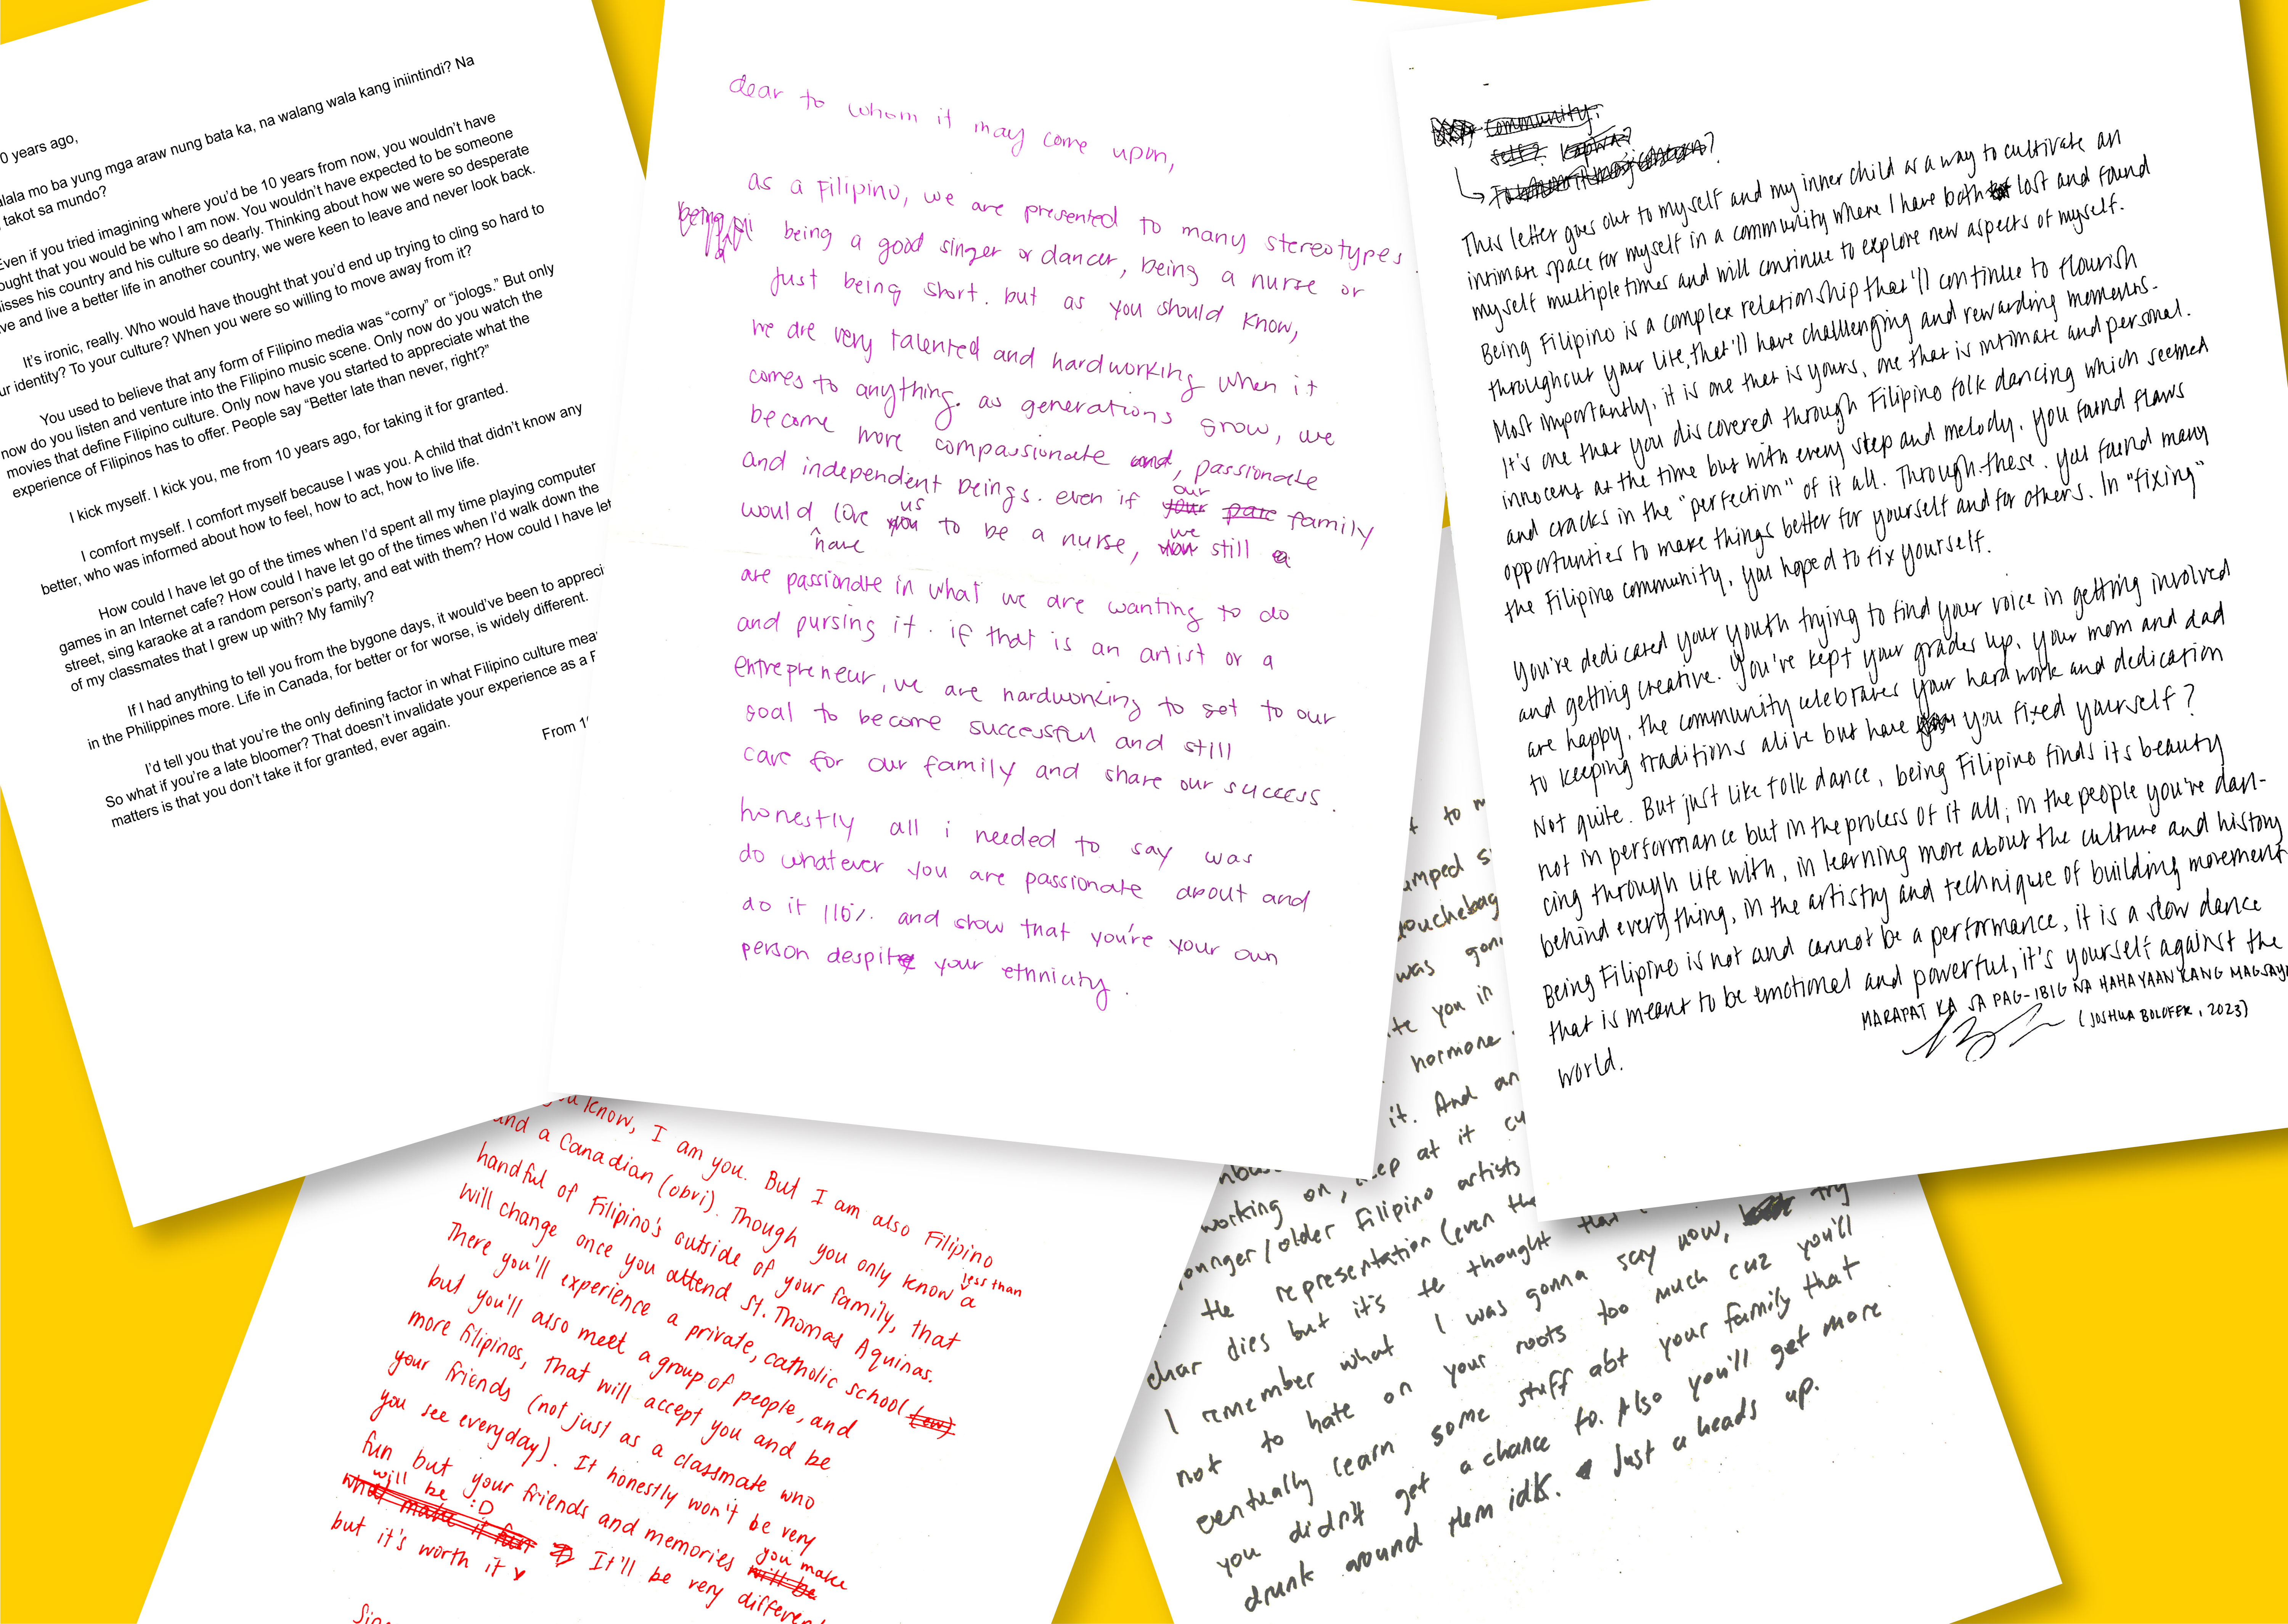 0 years ago,
alala mo ba yung mga araw nung bata ka, na walang wala kang iniintindi? Na
takot sa mundo?
Even if you tried imagining where you'd be 10 years from now, you wouldn't have
ought that you would be who I am now. You wouldn't have expected to be someone
isses his country and his culture so dearly. Thinking about how we were so desperate
ve and live a better life in another country, we were keen to leave and never look back.
It's ironic, really. Who would have thought that you'd end up trying to cling so hard to
ur identity? To your culture? When you were so willing to move away from it?
You used to believe that any form of Filipino media was "corny" or "jologs." But only
now do you listen and venture into the Filipino music scene. Only now do you watch the
movies that define Filipino culture. Only now have you started to appreciate what the
experience of Filipinos has to offer. People say "Better late than never, right?"
I kick myself. I kick you, me from 10 years ago, for taking it for granted.
I comfort myself. I comfort myself because I was you. A child that didn't know any
better, who was informed about how to feel, how to act, how to live life.
How could I have let go of the times when I'd spent all my time playing computer
games in an Internet cafe? How could I have let go of the times when I'd walk down the
street, sing karaoke at a random person's party, and eat with them? How could I have let
of my classmates that I grew up with? My family?
If I had anything to tell you from the bygone days, it would've been to appreci
in the Philippines more. Life in Canada, for better or for worse, is widely different.
I'd tell you that you're the only defining factor in what Filipino culture mea
So what if you're a late bloomer? That doesn't invalidate your experience as a F
matters is that you don't take it for granted, ever again.
From 1
dear to whom it may come upon,
as a Filipino, we are presented to many stereotypes.
being a good singer or dancer, being a nurse or
just being short. but as you should know,
we are very talented and hardworking when it
comes to anything. as generations grow, we
become more compassionate and, passionate
and independent beings. even if our family
would love us to be a nurse, we still
have
are passionate in what we are wanting to do
and pursing it. if that is an artist or a
entrepreneur, we are hardworking to set to our
goal to become successful and still
care for our family and share our success.
honestly all i needed to say was
do whatever you are passionate about and
do it 110% and show that you're your own
person despite your ethnicity.
community:
self? kapwa?
This letter goes out to myself and my inner child as a way to cultivate an
intimate space for myself in a community where I have both lost and found
myself multiple times and will continue to explore new aspects of myself.
Being Filipino is a complex relationship that'll continue to flourish
throughout your life, that'll have challenging and rewarding moments.
Most importantly, it is one that is yours, one that is intimate and personal.
It's one that you discovered through Filipino folk dancing which seemed
innocent at the time but with every step and melody, you found flaws
and cracks in the "perfection" of it all. Through these, you found many
opportunties to make things better for yourself and for others. In "fixing"
the Filipino community, you hoped to fix yourself.
You're dedicated your youth trying to find your voice in getting involved
and getting creative. You've kept your grades up, your mom and dad
are happy, the community celebrates your hard work and dedication
to keeping traditions alive but have you fixed yourself?
Not quite. But just like folk dance, being Filipino finds its beauty
not in performance but in the process of it all; in the people you're dan-
cing through life with, in learning more about the culture and history
behind everything, in the artistry and technique of building movement
Being Filipino is not and cannot be a performance, it is a slow dance
that is meant to be emotional and powerful, it's yourself against the
world.
MARAPAT KA SA PAG-IBIG NA HAHAYAAN KANG MAGSAY
(JOSHUA BOLOFER, 2023)
you know, I am you. But I am also Filipino
and a Canadian (obvi). Though you only know a
less than
handful of Filipino's outside of your family, that
will change once you attend St. Thomas Aquinas.
There you'll experience a private, catholic school (ew)
but you'll also meet a group of people, and
more filipinos, that will accept you and be
your friends (not just as a classmate who
you see everyday). It honestly won't be very
fun but your friends and memories you make
will be :D
what make it fun It'll be very differen
but it's worth it
Sinc
t to m
umped s
douchebag
was gon
te you in
hormone
it. And an
working on, keep at it cu
ounger/older Filipino artists
the representation (even the
char dies but it's te thought that
I remember what I was gonna say now, try
not to hate on your roots too much cuz you'll
eventually learn some stuff abt your family that
you didn't get a chance to. Also you'll get more
drunk around them idk. Just a heads up.